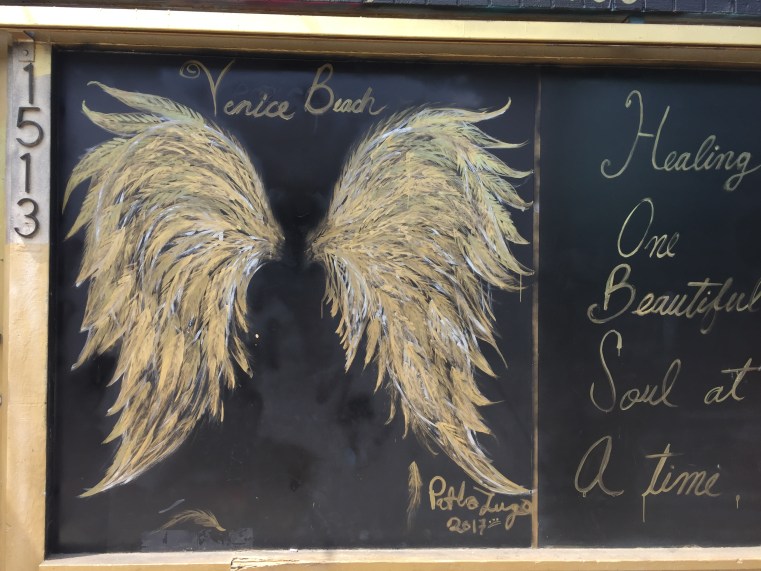 1513
Venice Beach
Healing
One
Beautiful
Soul at
A time.
Pablo Lugo
2017...